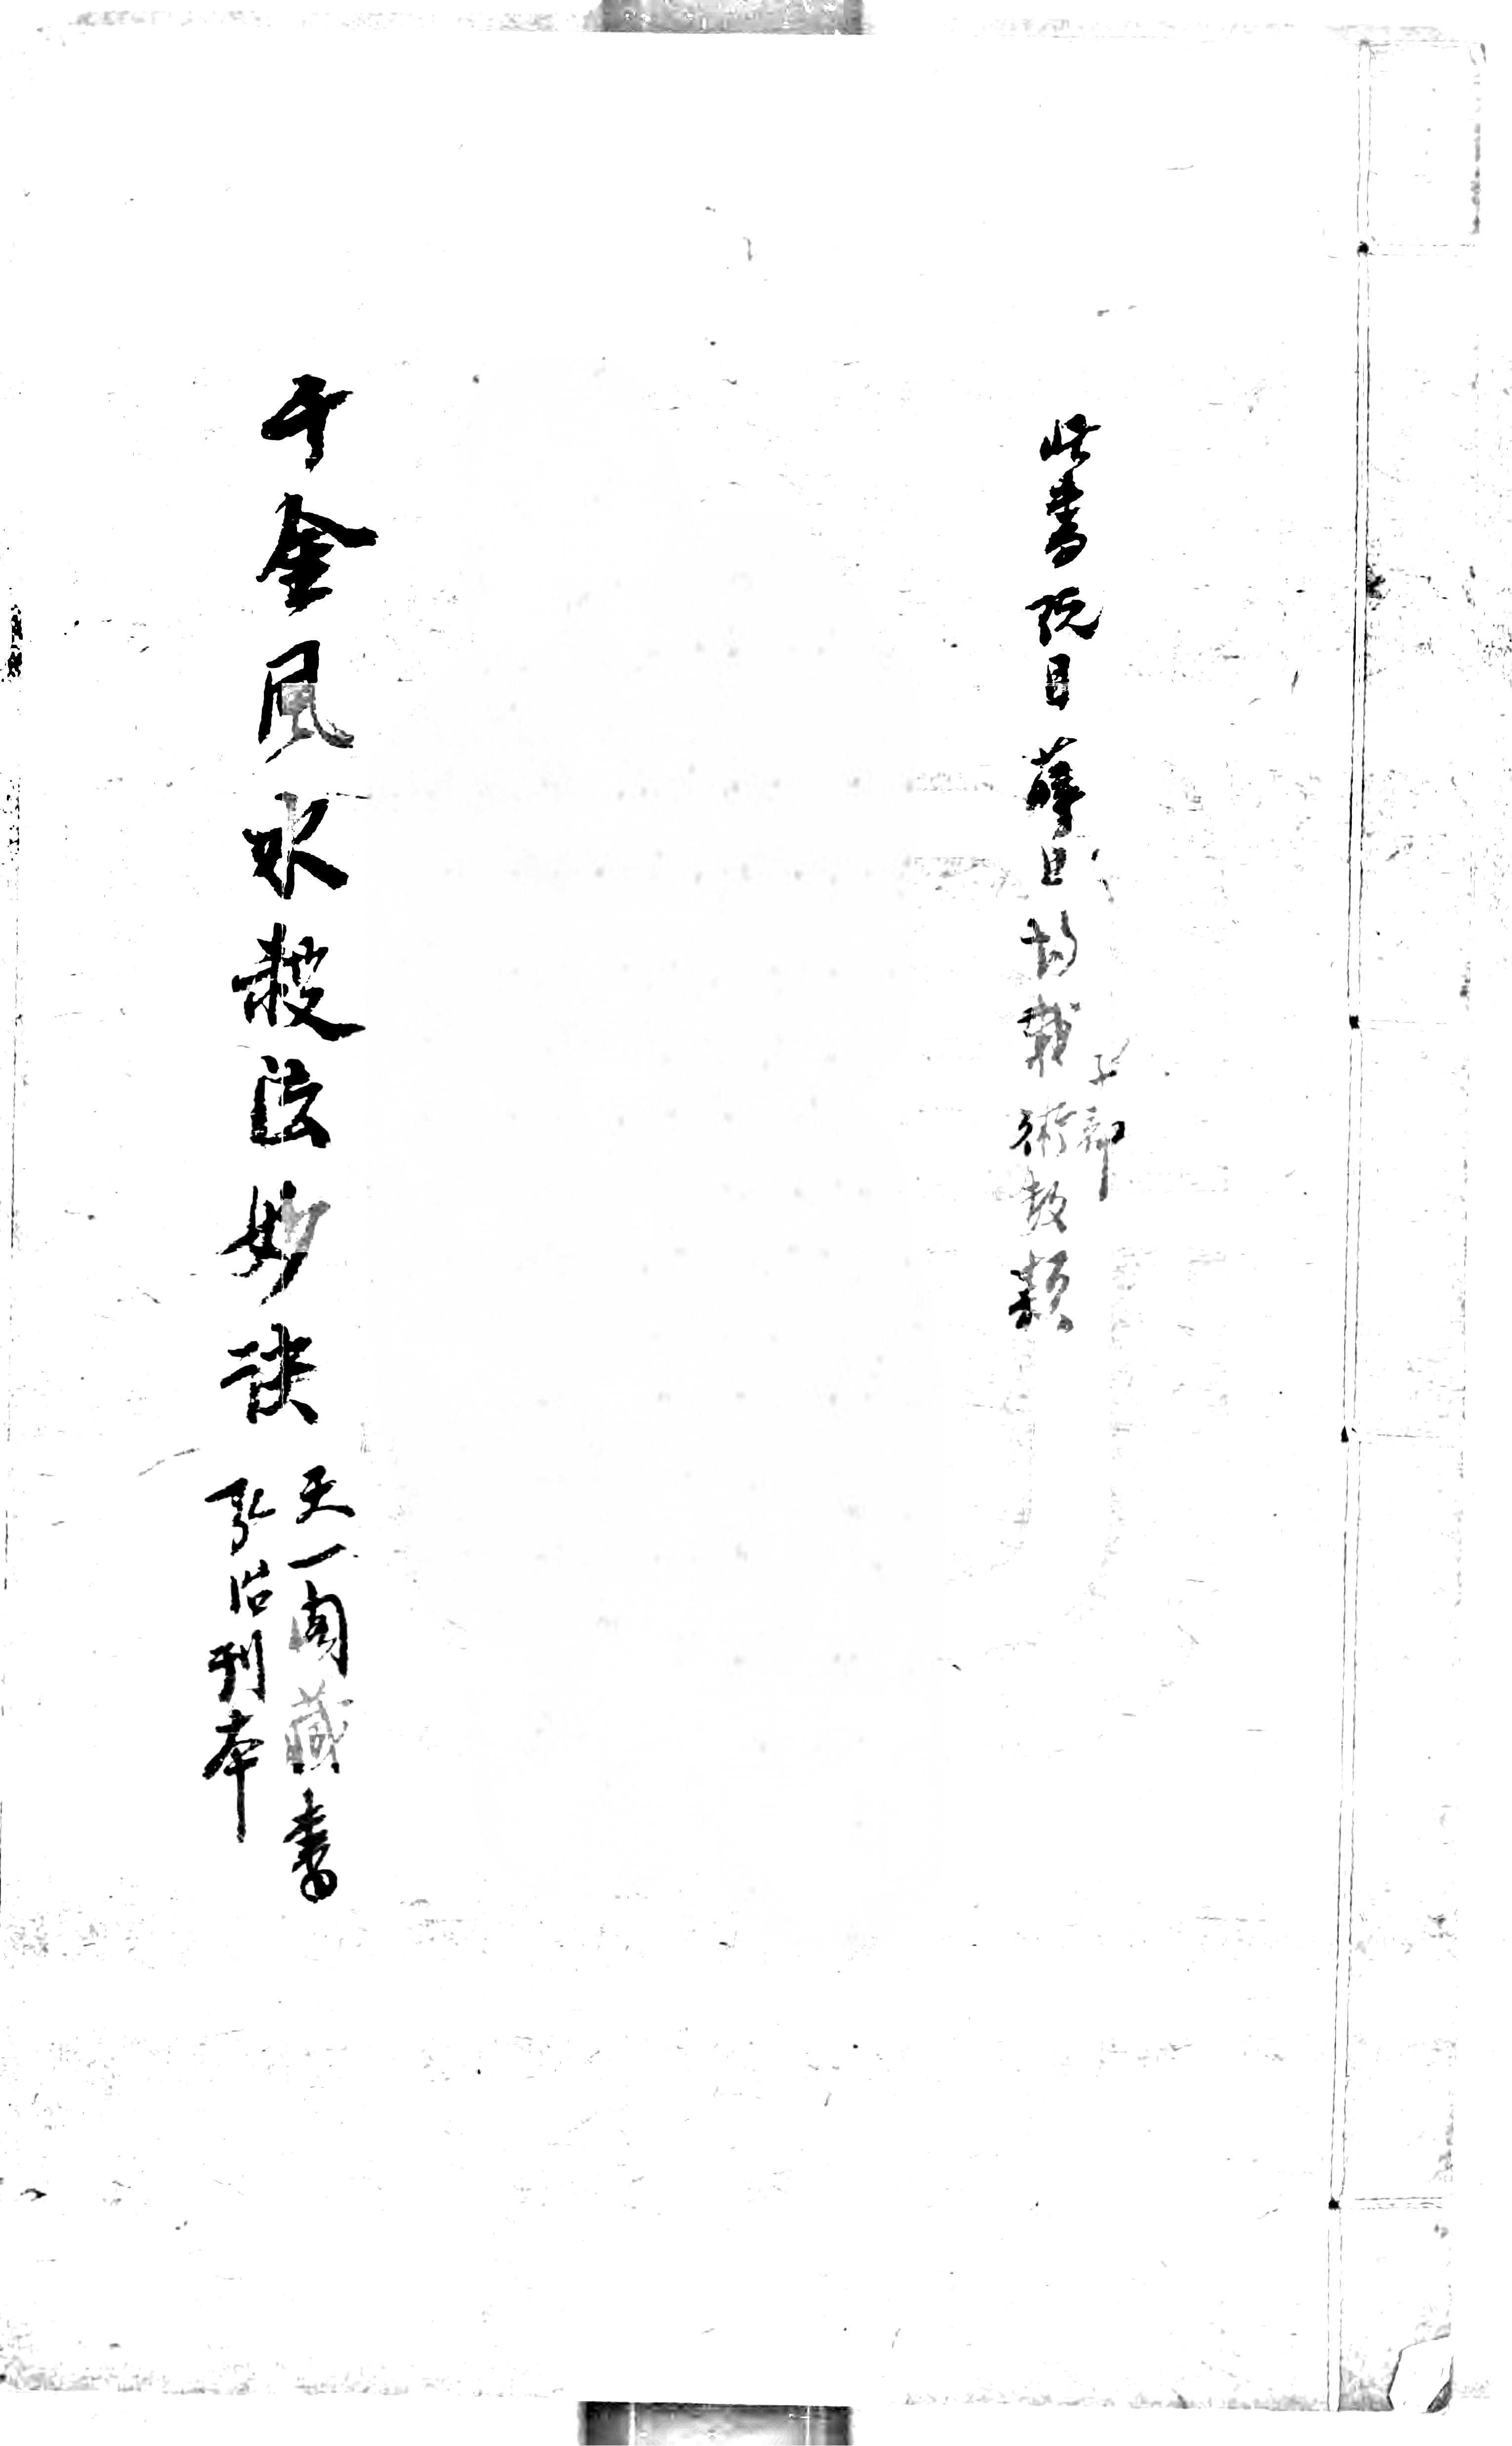 此書阮目薛目均載子部
術数類
千金風水殺法妙訣
天一閣藏書
弘治刊本